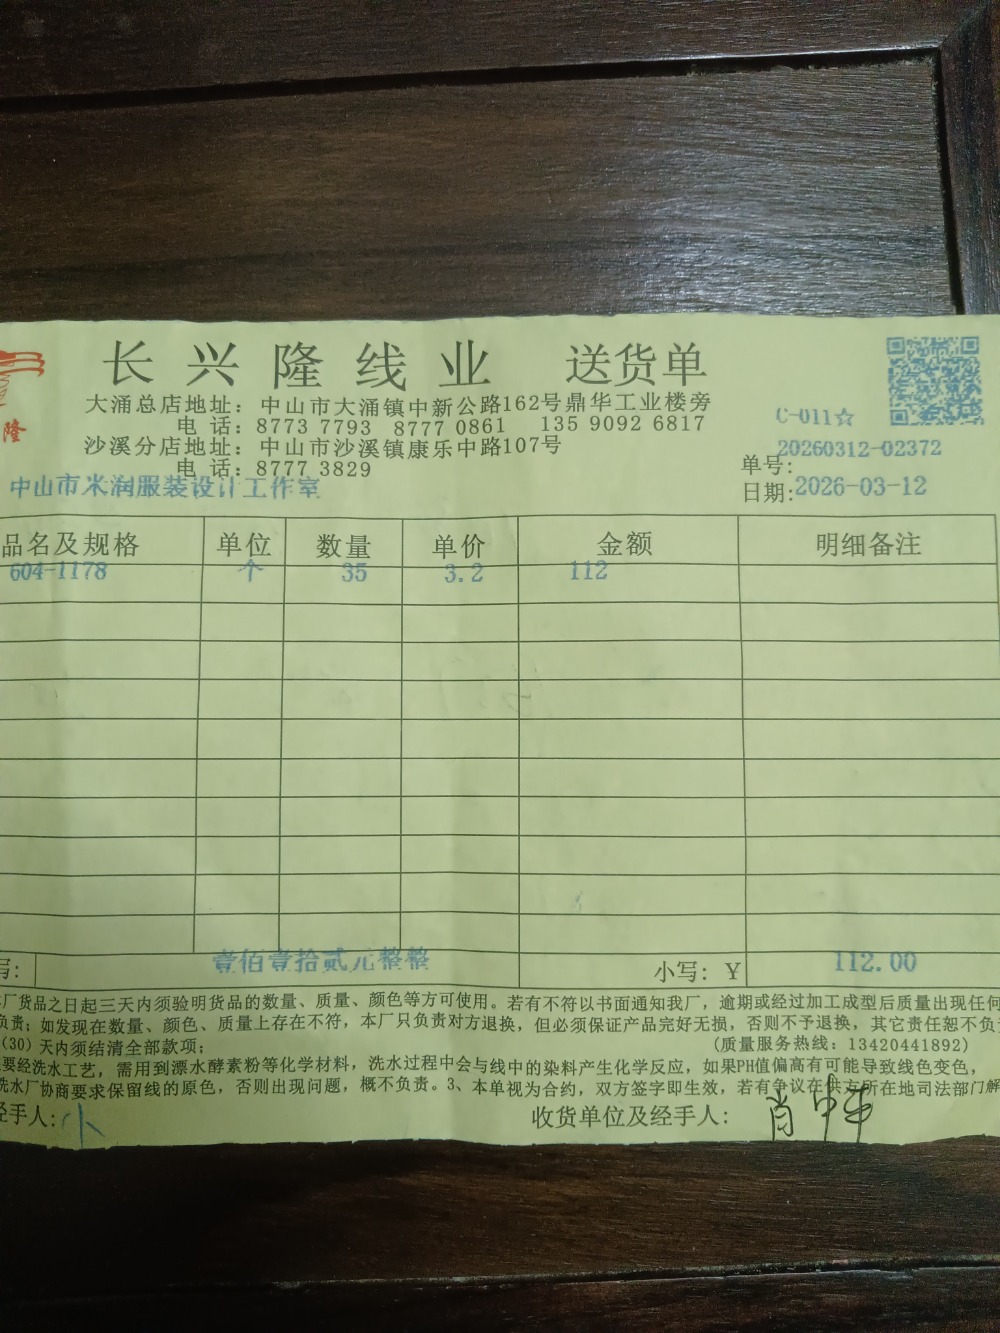 长兴隆线业 送货单
隆
大涌总店地址：中山市大涌镇中新公路162号鼎华工业楼旁
电 话：8773 7793 8777 0861 135 9092 6817
C-011☆
沙溪分店地址：中山市沙溪镇康乐中路107号
电 话：8777 3829
单号：20260312-02372
中山市米润服装设计工作室
日期：2026-03-12
品名及规格 单位 数量 单价 金额 明细备注
604-1178 个 35 3.2 112
写： 壹佰壹拾贰元整整 小写：￥ 112.00
厂货品之日起三天内须验明货品的数量、质量、颜色等方可使用。若有不符以书面通知我厂，逾期或经过加工成型后质量出现任何
负责；如发现在数量、颜色、质量上存在不符，本厂只负责对方退换，但必须保证产品完好无损，否则不予退换，其它责任恕不负
(30) 天内须结清全部款项； (质量服务热线：13420441892)
要经洗水工艺，需用到漂水酵素粉等化学材料，洗水过程中会与线中的染料产生化学反应，如果PH值偏高有可能导致线色变色，
洗水厂协商要求保留线的原色，否则出现问题，概不负责。3、本单视为合约，双方签字即生效，若有争议在供方所在地司法部门解
经手人： 收货单位及经手人：